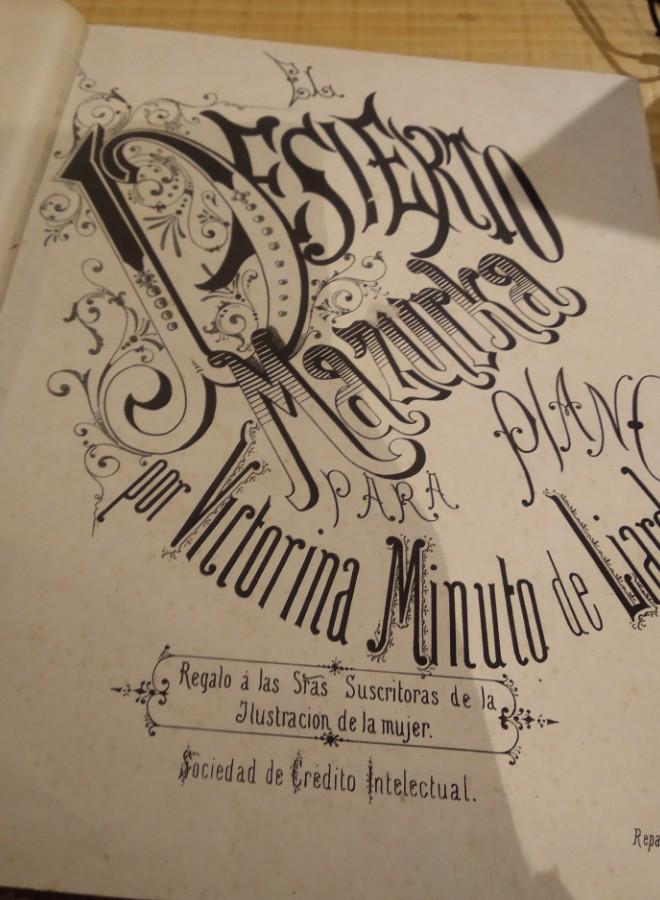 EL
DESIERTO
Mazurka
PARA PIANO
por Victorina Minuto de
Regalo á las Sras Suscritoras de la
Ilustracion de la mujer.
Sociedad de Crédito Intelectual.